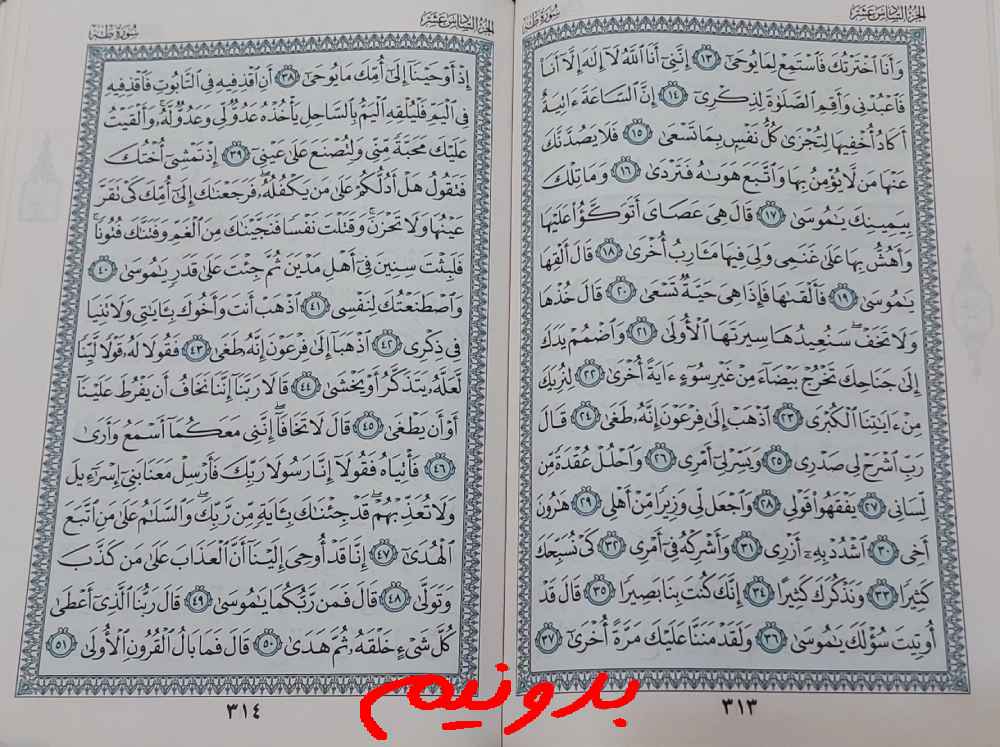 الجزء السادس عشر
سورة طه
وَأَنَا ٱخْتَرْتُكَ فَٱسْتَمِعْ لِمَا يُوحَىٰٓ ١٣ إِنَّنِىٓ أَنَا ٱللَّهُ لَآ إِلَٰهَ إِلَّآ أَنَا۠
فَٱعْبُدْنِى وَأَقِمِ ٱلصَّلَوٰةَ لِذِكْرِىٓ ١٤ إِنَّ ٱلسَّاعَةَ ءَاتِيَةٌ
أَكَادُ أُخْفِيهَا لِتُجْزَىٰ كُلُّ نَفْسٍۭ بِمَا تَسْعَىٰ ١٥ فَلَا يَصُدَّنَّكَ
عَنْهَا مَن لَّا يُؤْمِنُ بِهَا وَٱتَّبَعَ هَوَىٰهُ فَتَرْدَىٰ ١٦ وَمَا تِلْكَ
بِيَمِينِكَ يَٰمُوسَىٰ ١٧ قَالَ هِىَ عَصَاىَ أَتَوَكَّؤُا۟ عَلَيْهَا
وَأَهُشُّ بِهَا عَلَىٰ غَنَمِى وَلِىَ فِيهَا مَـَٔارِبُ أُخْرَىٰ ١٨ قَالَ أَلْقِهَا
يَٰمُوسَىٰ ١٩ فَأَلْقَىٰهَا فَإِذَا هِىَ حَيَّةٌ تَسْعَىٰ ٢٠ قَالَ خُذْهَا
وَلَا تَخَفْ ۖ سَنُعِيدُهَا سِيرَتَهَا ٱلْأُولَىٰ ٢١ وَٱضْمُمْ يَدَكَ
إِلَىٰ جَنَاحِكَ تَخْرُجْ بَيْضَآءَ مِنْ غَيْرِ سُوٓءٍ ءَايَةً أُخْرَىٰ ٢٢ لِنُرِيَكَ
مِنْ ءَايَٰتِنَا ٱلْكُبْرَى ٢٣ ٱذْهَبْ إِلَىٰ فِرْعَوْنَ إِنَّهُۥ طَغَىٰ ٢٤ قَالَ
رَبِّ ٱشْرَحْ لِى صَدْرِى ٢٥ وَيَسِّرْ لِىٓ أَمْرِى ٢٦ وَٱحْلُلْ عُقْدَةً مِّن
لِّسَانِى ٢٧ يَفْقَهُوا۟ قَوْلِى ٢٨ وَٱجْعَل لِّى وَزِيرًا مِّنْ أَهْلِى ٢٩ هَٰرُونَ
أَخِى ٣٠ ٱشْدُدْ بِهِۦٓ أَزْرِى ٣١ وَأَشْرِكْهُ فِىٓ أَمْرِى ٣٢ كَىْ نُسَبِّحَكَ
كَثِيرًا ٣٣ وَنَذْكُرَكَ كَثِيرًا ٣٤ إِنَّكَ كُنتَ بِنَا بَصِيرًا ٣٥ قَالَ قَدْ
أُوتِيتَ سُؤْلَكَ يَٰمُوسَىٰ ٣٦ وَلَقَدْ مَنَنَّا عَلَيْكَ مَرَّةً أُخْرَىٰٓ ٣٧
٣١٣
الجزء السادس عشر
سورة طه
إِذْ أَوْحَيْنَآ إِلَىٰٓ أُمِّكَ مَا يُوحَىٰٓ ٣٨ أَنِ ٱقْذِفِيهِ فِى ٱلتَّابُوتِ فَٱقْذِفِيهِ
فِى ٱلْيَمِّ فَلْيُلْقِهِ ٱلْيَمُّ بِٱلسَّاحِلِ يَأْخُذْهُ عَدُوٌّ لِّى وَعَدُوٌّ لَّهُۥ ۚ وَأَلْقَيْتُ
عَلَيْكَ مَحَبَّةً مِّنِّى وَلِتُصْنَعَ عَلَىٰ عَيْنِىٓ ٣٩ إِذْ تَمْشِىٓ أُخْتُكَ
فَتَقُولُ هَلْ أَدُلُّكُمْ عَلَىٰ مَن يَكْفُلُهُۥ ۖ فَرَجَعْنَٰكَ إِلَىٰٓ أُمِّكَ كَىْ تَقَرَّ
عَيْنُهَا وَلَا تَحْزَنَ ۚ وَقَتَلْتَ نَفْسًا فَنَجَّيْنَٰكَ مِنَ ٱلْغَمِّ وَفَتَنَّٰكَ فُتُونًا ۚ
فَلَبِثْتَ سِنِينَ فِىٓ أَهْلِ مَدْيَنَ ثُمَّ جِئْتَ عَلَىٰ قَدَرٍ يَٰمُوسَىٰ ٤٠
وَٱصْطَنَعْتُكَ لِنَفْسِى ٤١ ٱذْهَبْ أَنتَ وَأَخُوكَ بِـَٔايَٰتِى وَلَا تَنِيَا
فِى ذِكْرِى ٤٢ ٱذْهَبَآ إِلَىٰ فِرْعَوْنَ إِنَّهُۥ طَغَىٰ ٤٣ فَقُولَا لَهُۥ قَوْلًا لَّيِّنًا
لَّعَلَّهُۥ يَتَذَكَّرُ أَوْ يَخْشَىٰ ٤٤ قَالَا رَبَّنَآ إِنَّنَا نَخَافُ أَن يَفْرُطَ عَلَيْنَآ
أَوْ أَن يَطْغَىٰ ٤٥ قَالَ لَا تَخَافَآ ۖ إِنَّنِى مَعَكُمَآ أَسْمَعُ وَأَرَىٰ
٤٦ فَأْتِيَاهُ فَقُولَآ إِنَّا رَسُولَا رَبِّكَ فَأَرْسِلْ مَعَنَا بَنِىٓ إِسْرَٰٓءِيلَ
وَلَا تُعَذِّبْهُمْ ۖ قَدْ جِئْنَٰكَ بِـَٔايَةٍ مِّن رَّبِّكَ ۖ وَٱلسَّلَٰمُ عَلَىٰ مَنِ ٱتَّبَعَ
ٱلْهُدَىٰٓ ٤٧ إِنَّا قَدْ أُوحِىَ إِلَيْنَآ أَنَّ ٱلْعَذَابَ عَلَىٰ مَن كَذَّبَ
وَتَوَلَّىٰ ٤٨ قَالَ فَمَن رَّبُّكُمَا يَٰمُوسَىٰ ٤٩ قَالَ رَبُّنَا ٱلَّذِىٓ أَعْطَىٰ
كُلَّ شَىْءٍ خَلْقَهُۥ ثُمَّ هَدَىٰ ٥٠ قَالَ فَمَا بَالُ ٱلْقُرُونِ ٱلْأُولَىٰ ٥١
٣١٤
بدونیم